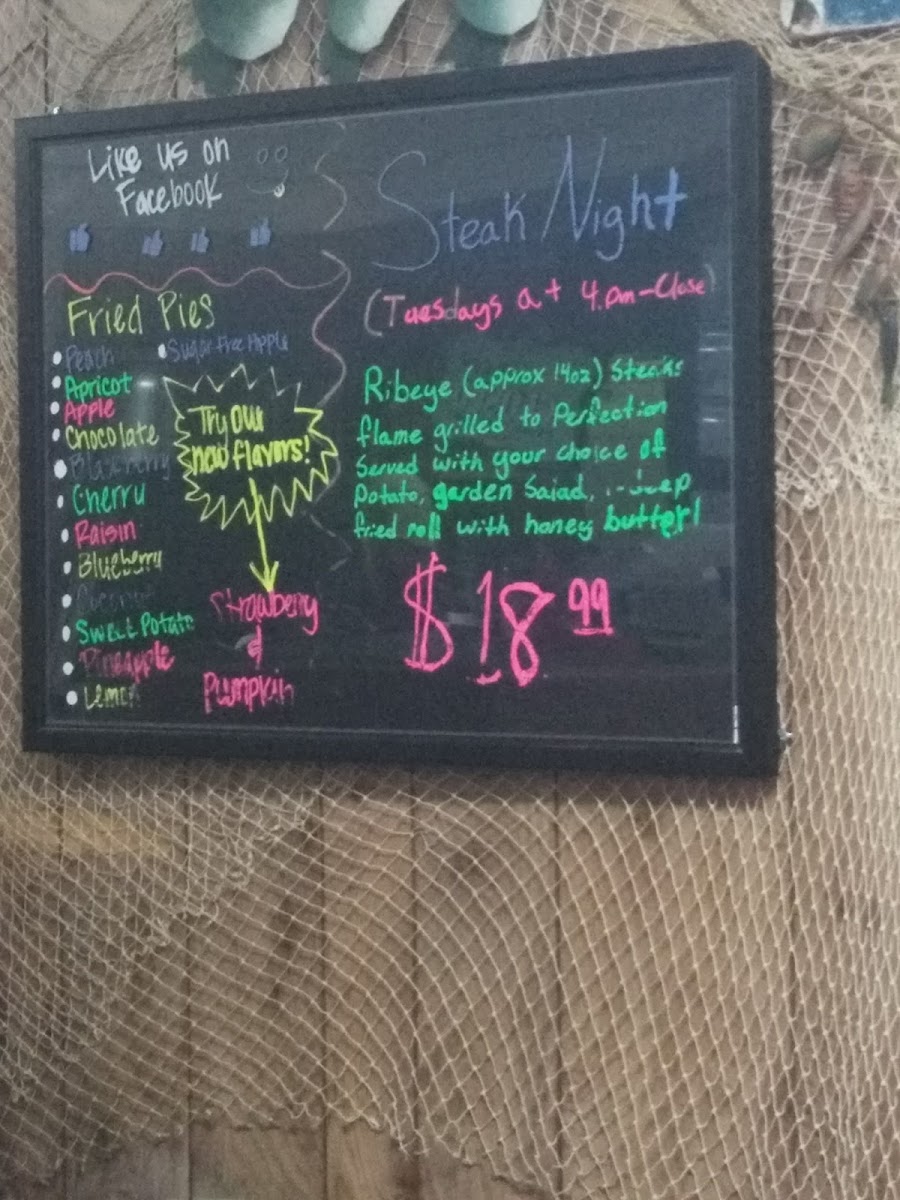 Like us on
Facebook
Fried Pies
Peach
Sugar Free Apple
Apricot
Apple
Chocolate
Blackberry
Cherry
Raisin
Blueberry
Coconut
Sweet Potato
Pineapple
Lemon
Try our
new flavors!
Strawberry
&
Pumpkin
Steak Night
(Tuesdays at 4pm-Close)
Ribeye (approx 14oz) Steaks
flame grilled to Perfection
Served with your choice of
Potato, garden Salad,
fried roll with honey butter!
$18.99